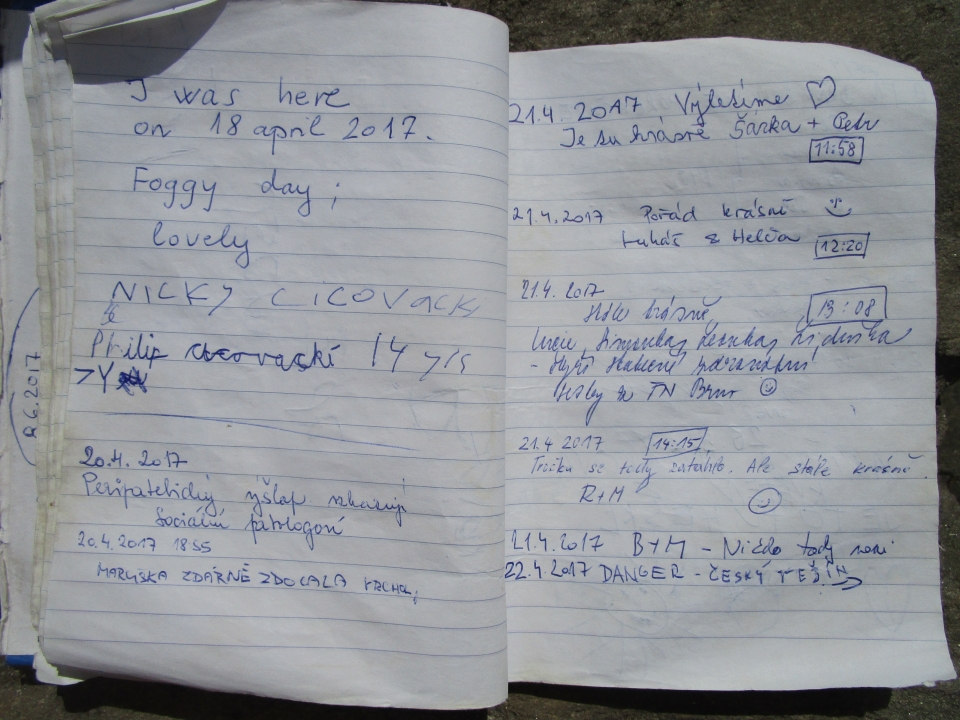 I was here
on 18 april 2017.
Foggy day;
lovely
NICKY CICOVACKI
&
Philip cicovacki 14 yrs
20.4.2017
Peripatetický výšlap
Sociální patologoři
20.4.2017 18:55
MARUŠKA ZDÁRNĚ ZDOLALA VRCHOL;
2.6.2017
21.4.2017 Výletíme ♡
Je tu krásně Šárka + Petr
11:58
21.4.2017 Pořád krásně
Lukáš & Helča
12:20
21.4.2017
13:08
krásně
Lucie
21.4 2017 14:15
Trochu se tady zatáhlo. Ale stále krásně
R+M
21.4.2017 B+M - Nikdo tady není
22.4.2017 DANGER - ČESKÝ TĚŠÍN